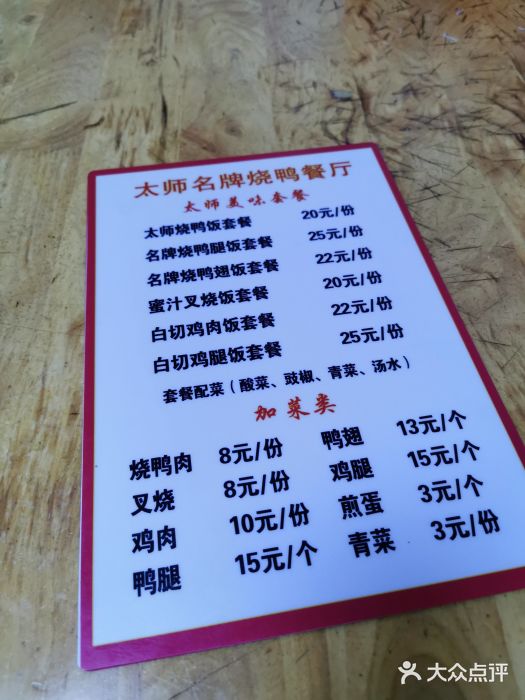 太师名牌烧鸭餐厅
太师美味套餐
太师烧鸭饭套餐 20元/份
名牌烧鸭腿饭套餐 25元/份
名牌烧鸭翅饭套餐 22元/份
蜜汁叉烧饭套餐 20元/份
白切鸡肉饭套餐 22元/份
白切鸡腿饭套餐 25元/份
套餐配菜（酸菜、豉椒、青菜、汤水）
加菜类
烧鸭肉 8元/份 鸭翅 13元/个
叉烧 8元/份 鸡腿 15元/个
鸡肉 10元/份 煎蛋 3元/个
鸭腿 15元/个 青菜 3元/份
大众点评